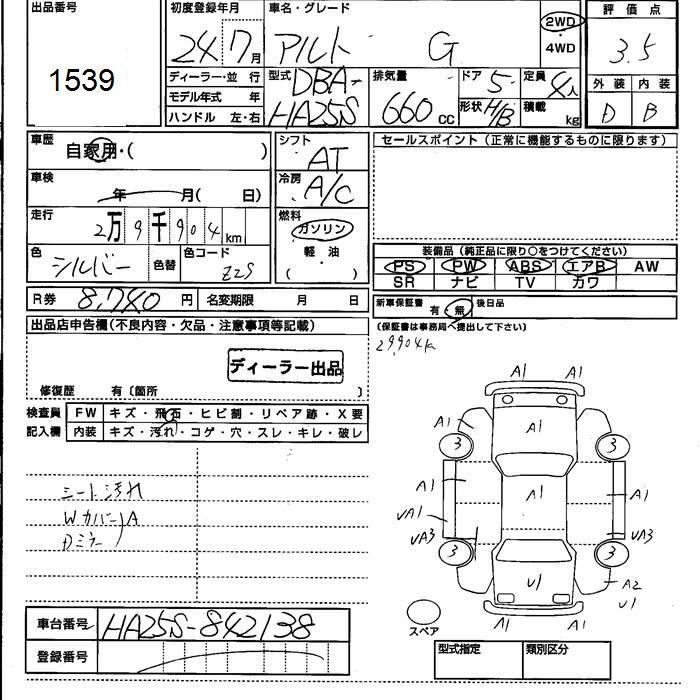 出品番号
1539
初度登録年月
24 7月
車名・グレード
アルト G
2WD
4WD
評価点
3.5
外装 内装
D B
ディーラー・並行
モデル年式 年
ハンドル 左・右
型式
DBA-
HA25S
排気量
660 cc
ドア 5
形状 H/B
定員 4人
積載 kg
車歴
自家用・( )
車検
年 月( 日)
走行
2万9千904km
色
シルバー
色替
色コード
Z2S
シフト
AT
冷房
A/C
燃料
ガソリン
軽・油
( ・ )
R券 8,740円
名変期限 月 日
セールスポイント (正常に機能するものに限ります)
装備品 (純正品に限り○をつけてください)
PS PW ABS エアB AW
SR ナビ TV カワ
新車保証書 有・無 後日品
(保証書は事務局へ提出して下さい)
29,904k
出品店申告欄(不良内容・欠品・注意事項等記載)
ディーラー出品
修復歴 有〔箇所 〕
検査員
記入欄
FW キズ・飛石・ヒビ割・リペア跡・X要
内装 キズ・汚れ・コゲ・穴・スレ・キレ・破レ
シート汚れ
Wカバー A
Dミラー
A1 A1
A1 A1 A1
3 3
A1 A1 A1
UA1
UA3 UA3
3 3
U1 A2
U1
A1 A1
スペア
車台番号 HA25S-842138
登録番号
型式指定 類別区分